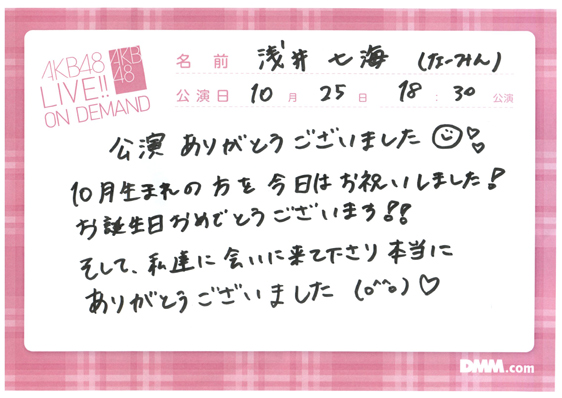 AKB48
LIVE!!
ON DEMAND
AKB
48
名前 浅井七海 (なーみん)
公演日 10月 25日 18:30 公演
公演 ありがとうございました
10月生まれの方を今日はお祝いしました!
お誕生日おめでとうございます!!
そして、私達に会いに来て下さり本当に
ありがとうございました (o^^o)♡
DMM.com